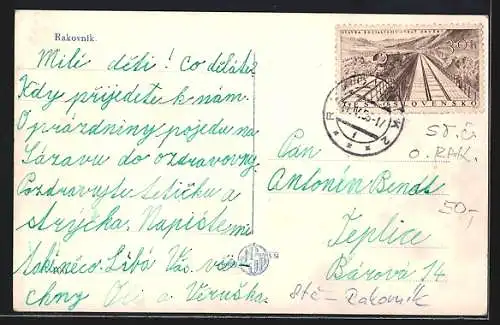 Rakovník.
Milí děti! Co děláte?
Kdy přijedete k nám.
O prázdniny pojedu na
Sázavu do ozdravovny.
Pozdravujte tetičku a
strýčka. Napište mi
taky něco. Líbá Vás vše-
chny Oli a Věruška.
STAVBA SOCIALISTICKÉHO
30h
ČESKOSLOVENSKO
RAKOVNÍK 2
Pan
Antonín Bendt
Teplice
Bárová 14
stř. Č.
o. RAK.
50,-
Stč - Rakovník